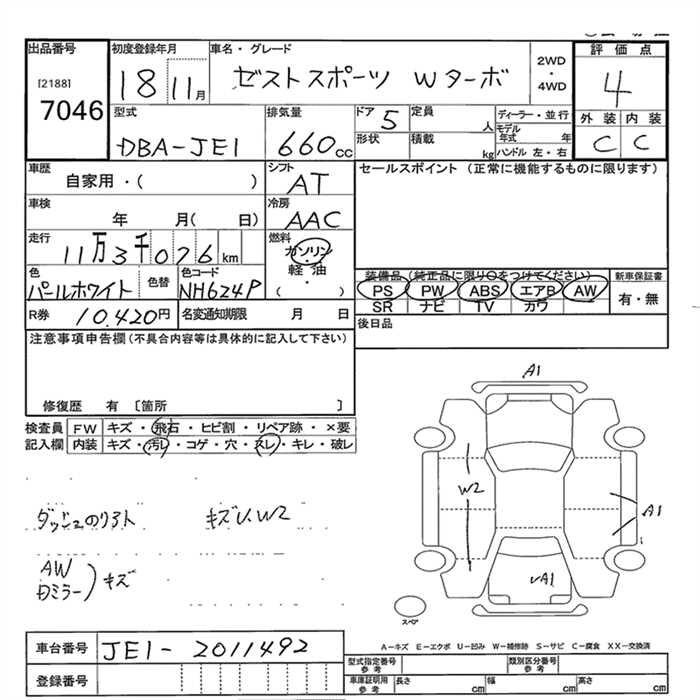 出品番号
[2188]
7046
初度登録年月
18 11月
車名・グレード
ゼストスポーツ Wターボ
2WD
・
4WD
評価点
4
外装 内装
C C
型式
DBA-JE1
排気量
660cc
ドア 5
定員 人
形状
積載 kg
ディーラー・並行
モデル年式 年
ハンドル 左・右
車歴
自家用・( )
シフト
AT
セールスポイント (正常に機能するものに限ります)
車検
年 月( 日)
冷房
AAC
走行
11万3千076km
燃料
ガソリン
・
軽油
( )
色
パールホワイト
色替
色コード
NH624P
装備品 (純正品に限り○をつけてください)
PS PW ABS エアB AW
SR ナビ TV カワ
新車保証書
有・無
R券 10,420円
名変通知期限 月 日
後日品
注意事項申告欄(不具合内容等は具体的に記入して下さい)
修復歴 有 〔箇所 〕
検査員記入欄
FW キズ・飛石・ヒビ割・リペア跡・×要
内装 キズ・汚レ・コゲ・穴・スレ・キレ・破レ
A1
W2
A1
A1
キズU.W2
AW
Dミラー
キズ
スペア
A-キズ E-エクボ U-凹み W-補修跡 S-サビ C-腐食 XX-交換済
車台番号 JE1-2011492
登録番号
型式指定番号 参考
類別区分番号 参考
車庫証明用 参考
長さ cm 幅 cm 高さ cm